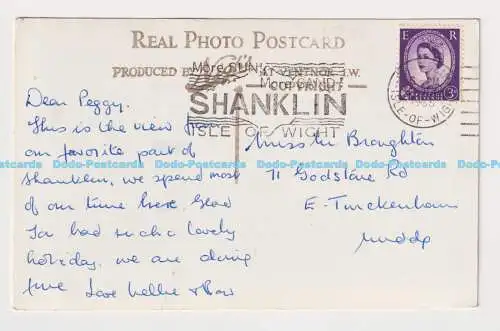 REAL PHOTO POSTCARD
PRODUCED BY AT VENTNOR I.W.
COPYRIGHT
More SUN
More SAND
SHANKLIN
ISLE OF WIGHT
E R
3D
ISLE-OF-WIG
Dear Peggy.
This is the view of
our favorite part of
Shanklin, we spend most
of our time here. Glad
you had such a lovely
holiday, we are doing
fine Love Nellie & Bow
Miss M Broughton
71 Godstone Rd
E. Twickenham
Middx
Dodo-Postcards Dodo-Postcards Dodo-Postcards Dodo-Postcards Dodo-Postcards